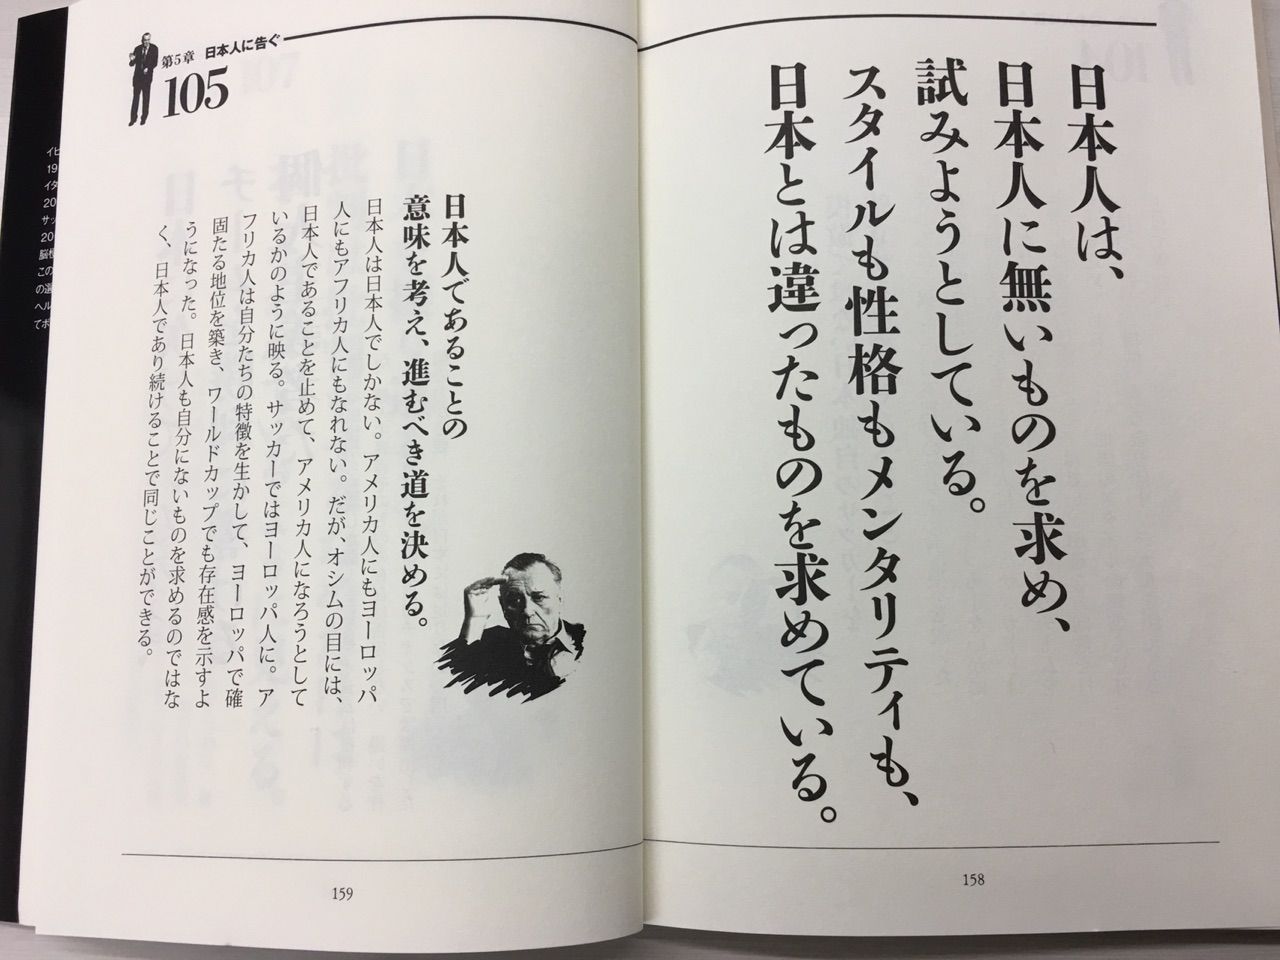 日本人は、
日本人に無いものを求め、
試みようとしている。
スタイルも性格もメンタリティも、
日本とは違ったものを求めている。
158
第5章 日本人に告ぐ
105
日本人であることの
意味を考え、進むべき道を決める。
日本人は日本人でしかない。アメリカ人にもヨーロッパ
人にもアフリカ人にもなれない。だが、オシムの目には、
日本人であることを止めて、アメリカ人になろうとして
いるかのように映る。サッカーではヨーロッパ人に。ア
フリカ人は自分たちの特徴を生かして、ヨーロッパで確
固たる地位を築き、ワールドカップでも存在感を示すよ
うになった。日本人も自分にないものを求めるのではな
く、日本人であり続けることで同じことができる。
159
イビ
19
イタ
20
サッ
20
脳梗
この
の選
ヘル
てボ